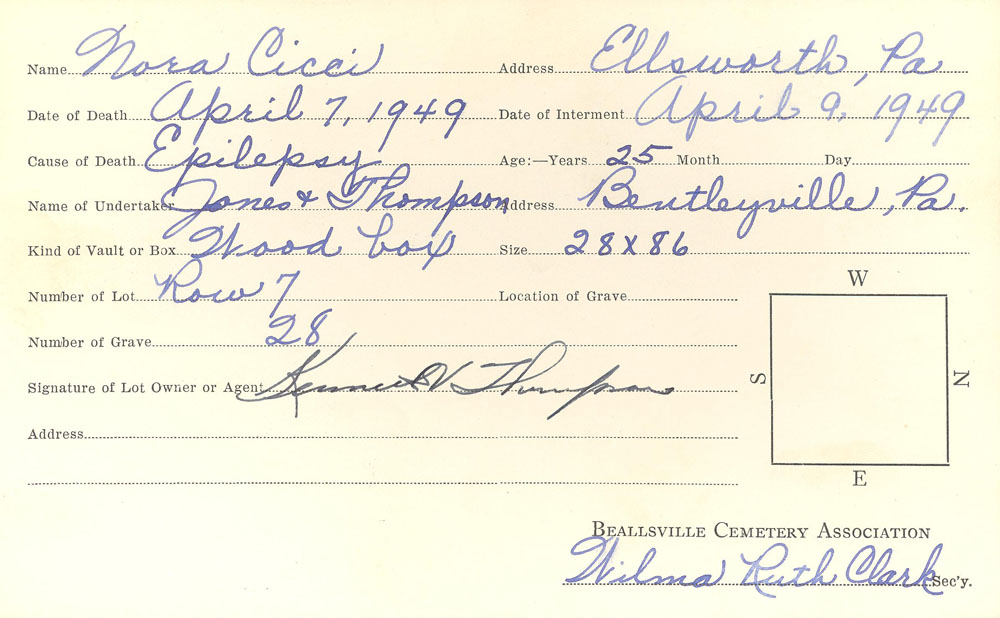 Name Nora Cicci Address Ellsworth, Pa
Date of Death April 7, 1949 Date of Interment April 9, 1949
Cause of Death Epilepsy Age:—Years 25 Month Day
Name of Undertaker Jones & Thompson Address Bentleyville, Pa.
Kind of Vault or Box Wood box Size 28 x 86
Number of Lot Row 7 Location of Grave
W
Number of Grave 28
S N
Signature of Lot Owner or Agent Kenneth V Thompson
Address
E
BEALLSVILLE CEMETERY ASSOCIATION
Wilma Ruth Clark Sec'y.